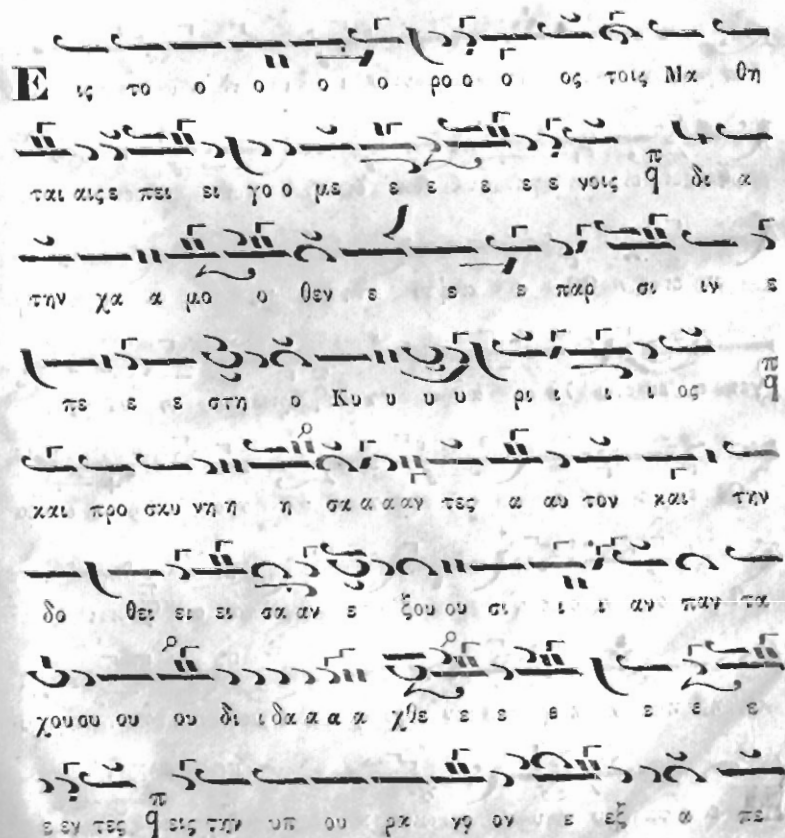 Ε ις το ο ο ο ο ρο ο ο ος τοις Μα θη
ται αις ε πει ει γο ο με ε ε ε ε ε νοις π q δι α
την χα α μο ο θεν ε ε ε παρ σι ιν ε
πε ε ε στη ο Κυ υ υ υ ρι ι ι ι ος π q
και προ σκυ νη η η σα α α αν τες α αυ τον και την
δο θει ει ει σα αν ε ζου ου σι ι ι αν παν τα
χου ου ου ου δι ι δα α α α χθε ε ε ε ε ε ε
ε εν τες π q εις την υπ ου ρα νο ον ε εξ α πε